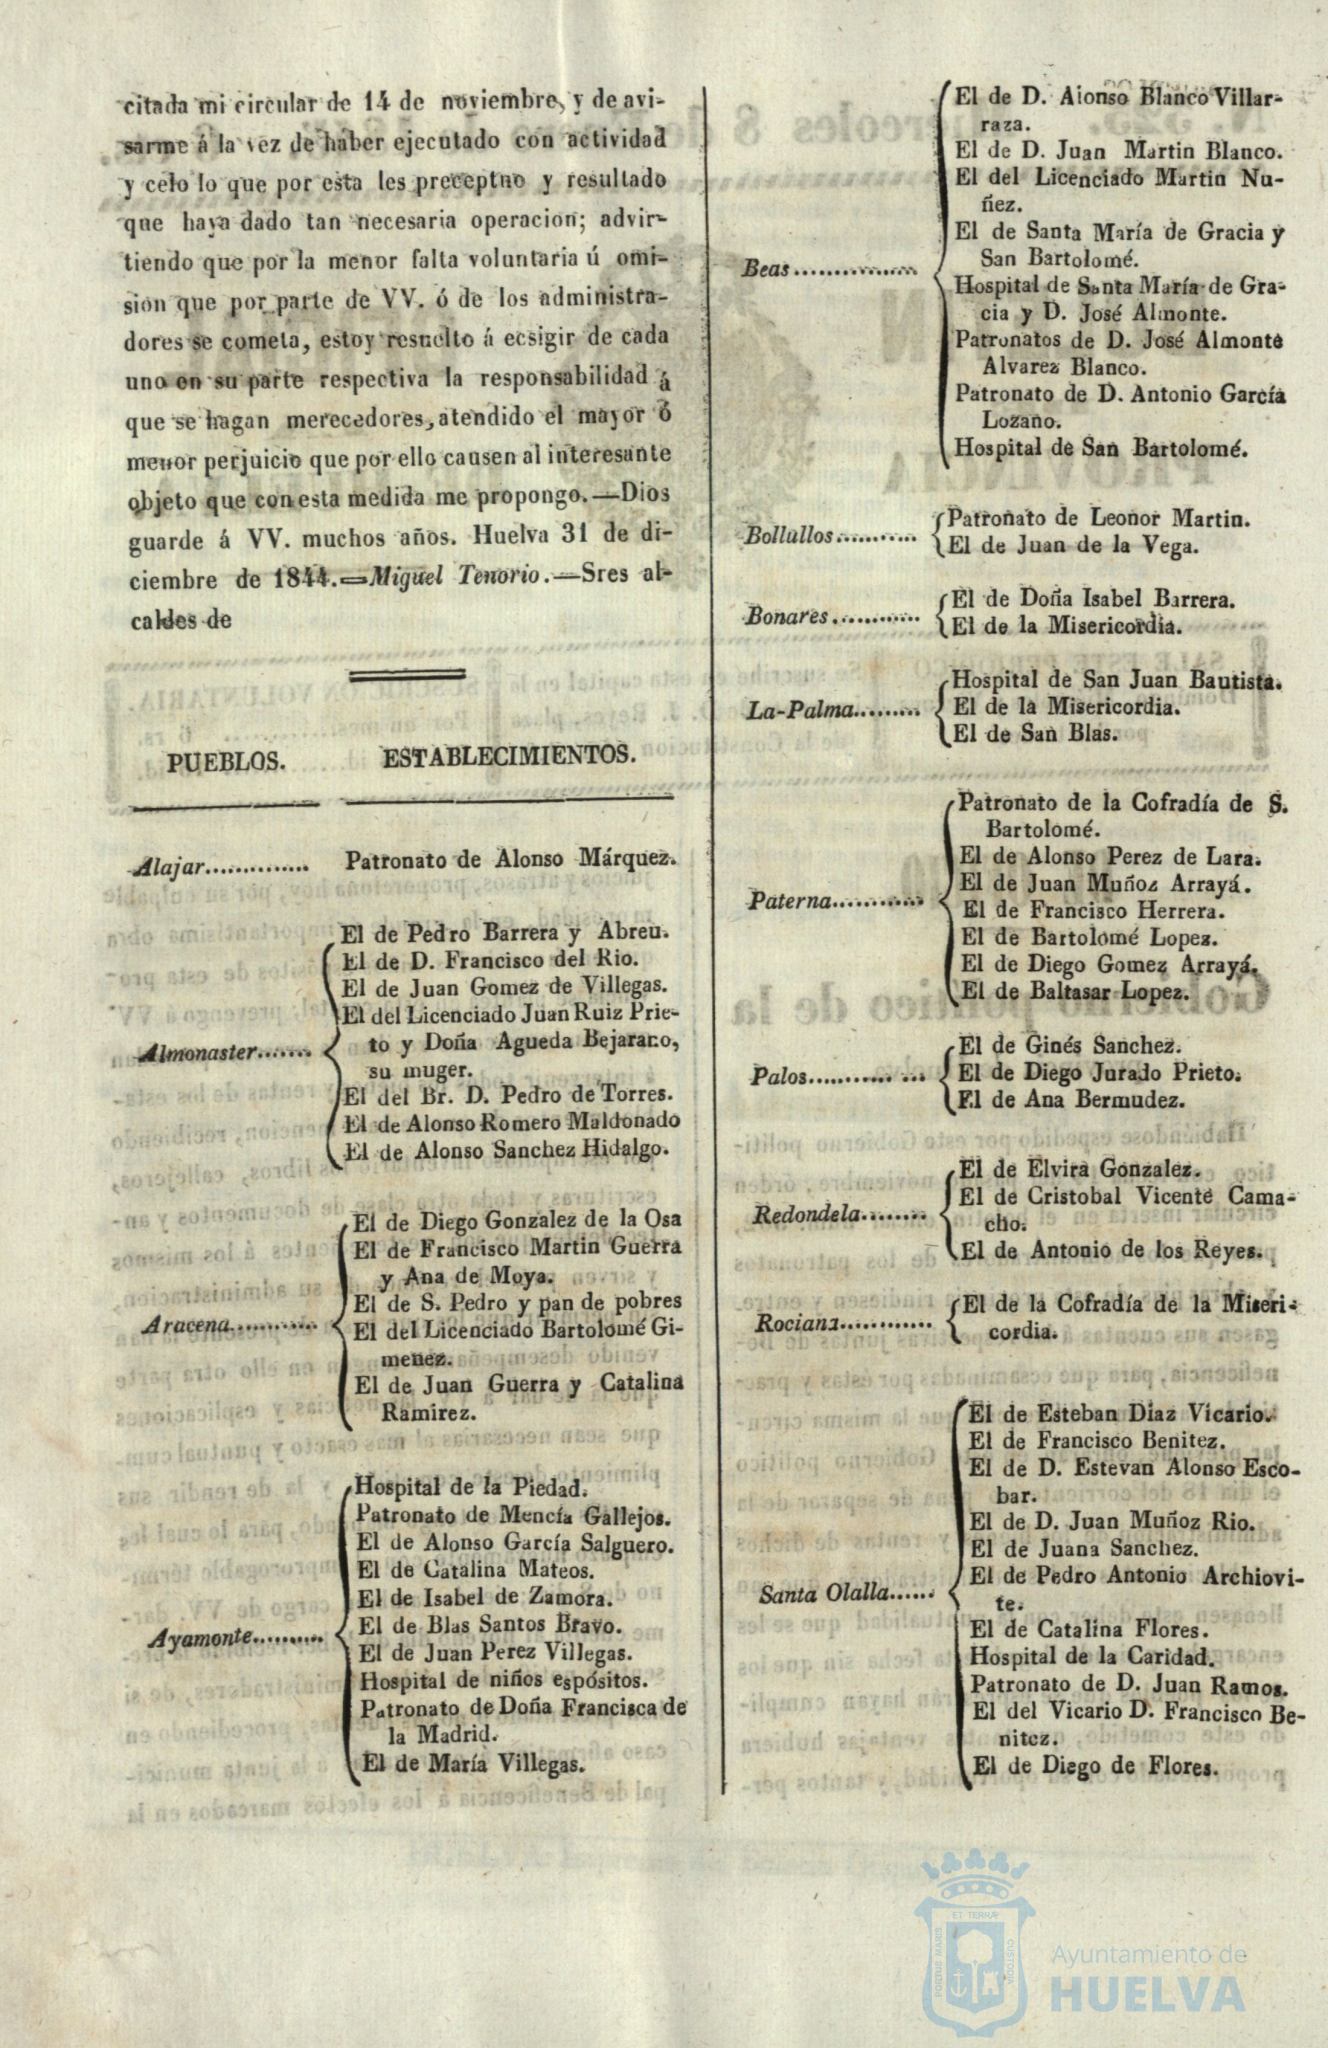 citada mi circular de 14 de noviembre, y de avi-
sarme á la vez de haber ejecutado con actividad
y celo lo que por esta les preceptuo y resultado
que haya dado tan necesaria operacion; advir-
tiendo que por la menor falta voluntaria ú omi-
sion que por parte de VV. ó de los administra-
dores se cometa, estoy resuelto á ecsigir de cada
uno en su parte respectiva la responsabilidad á
que se hagan merecedores, atendido el mayor ó
menor perjuicio que por ello causen al interesante
objeto que con esta medida me propongo.—Dios
guarde á VV. muchos años. Huelva 31 de di-
ciembre de 1844.=Miguel Tenorio.—Sres al-
caldes de
PUEBLOS. ESTABLECIMIENTOS.
Alajar............. Patronato de Alonso Márquez.
Almonaster.......
El de Pedro Barrera y Abreu.
El de D. Francisco del Rio.
El de Juan Gomez de Villegas.
El del Licenciado Juan Ruiz Prie-
to y Doña Agueda Bejarano,
su muger.
El del Br. D. Pedro de Torres.
El de Alonso Romero Maldonado
El de Alonso Sanchez Hidalgo.
Aracena...........
El de Diego Gonzalez de la Osa
El de Francisco Martin Guerra
y Ana de Moya.
El de S. Pedro y pan de pobres
El del Licenciado Bartolomé Gi-
menez.
El de Juan Guerra y Catalina
Ramirez.
Ayamonte..........
Hospital de la Piedad.
Patronato de Mencía Gallejos.
El de Alonso García Salguero.
El de Catalina Mateos.
El de Isabel de Zamora.
El de Blas Santos Bravo.
El de Juan Perez Villegas.
Hospital de niños espósitos.
Patronato de Doña Francisca de
la Madrid.
El de María Villegas.
Beas................
El de D. Alonso Blanco Villar-
raza.
El de D. Juan Martin Blanco.
El del Licenciado Martin Nu-
ñez.
El de Santa María de Gracia y
San Bartolomé.
Hospital de Santa María de Gra-
cia y D. José Almonte.
Patronatos de D. José Almonte
Alvarez Blanco.
Patronato de D. Antonio García
Lozano.
Hospital de San Bartolomé.
Bollullos..........
Patronato de Leonor Martin.
El de Juan de la Vega.
Bonares............
El de Doña Isabel Barrera.
El de la Misericordia.
La-Palma.........
Hospital de San Juan Bautista.
El de la Misericordia.
El de San Blas.
Paterna............
Patronato de la Cofradía de S.
Bartolomé.
El de Alonso Perez de Lara.
El de Juan Muñoz Arrayá.
El de Francisco Herrera.
El de Bartolomé Lopez.
El de Diego Gomez Arrayá.
El de Baltasar Lopez.
Palos........... ...
El de Ginés Sanchez.
El de Diego Jurado Prieto.
El de Ana Bermudez.
Redondela........
El de Elvira Gonzalez.
El de Cristobal Vicente Cama-
cho.
El de Antonio de los Reyes.
Rociana............
El de la Cofradía de la Miseri-
cordia.
Santa Olalla......
El de Esteban Diaz Vicario.
El de Francisco Benitez.
El de D. Estevan Alonso Esco-
bar.
El de D. Juan Muñoz Rio.
El de Juana Sanchez.
El de Pedro Antonio Archiovi-
te.
El de Catalina Flores.
Hospital de la Caridad.
Patronato de D. Juan Ramos.
El del Vicario D. Francisco Be-
nitez.
El de Diego de Flores.
ET TERRÆ
PORTUS MARIS
CUSTODIA
Ayuntamiento de
HUELVA